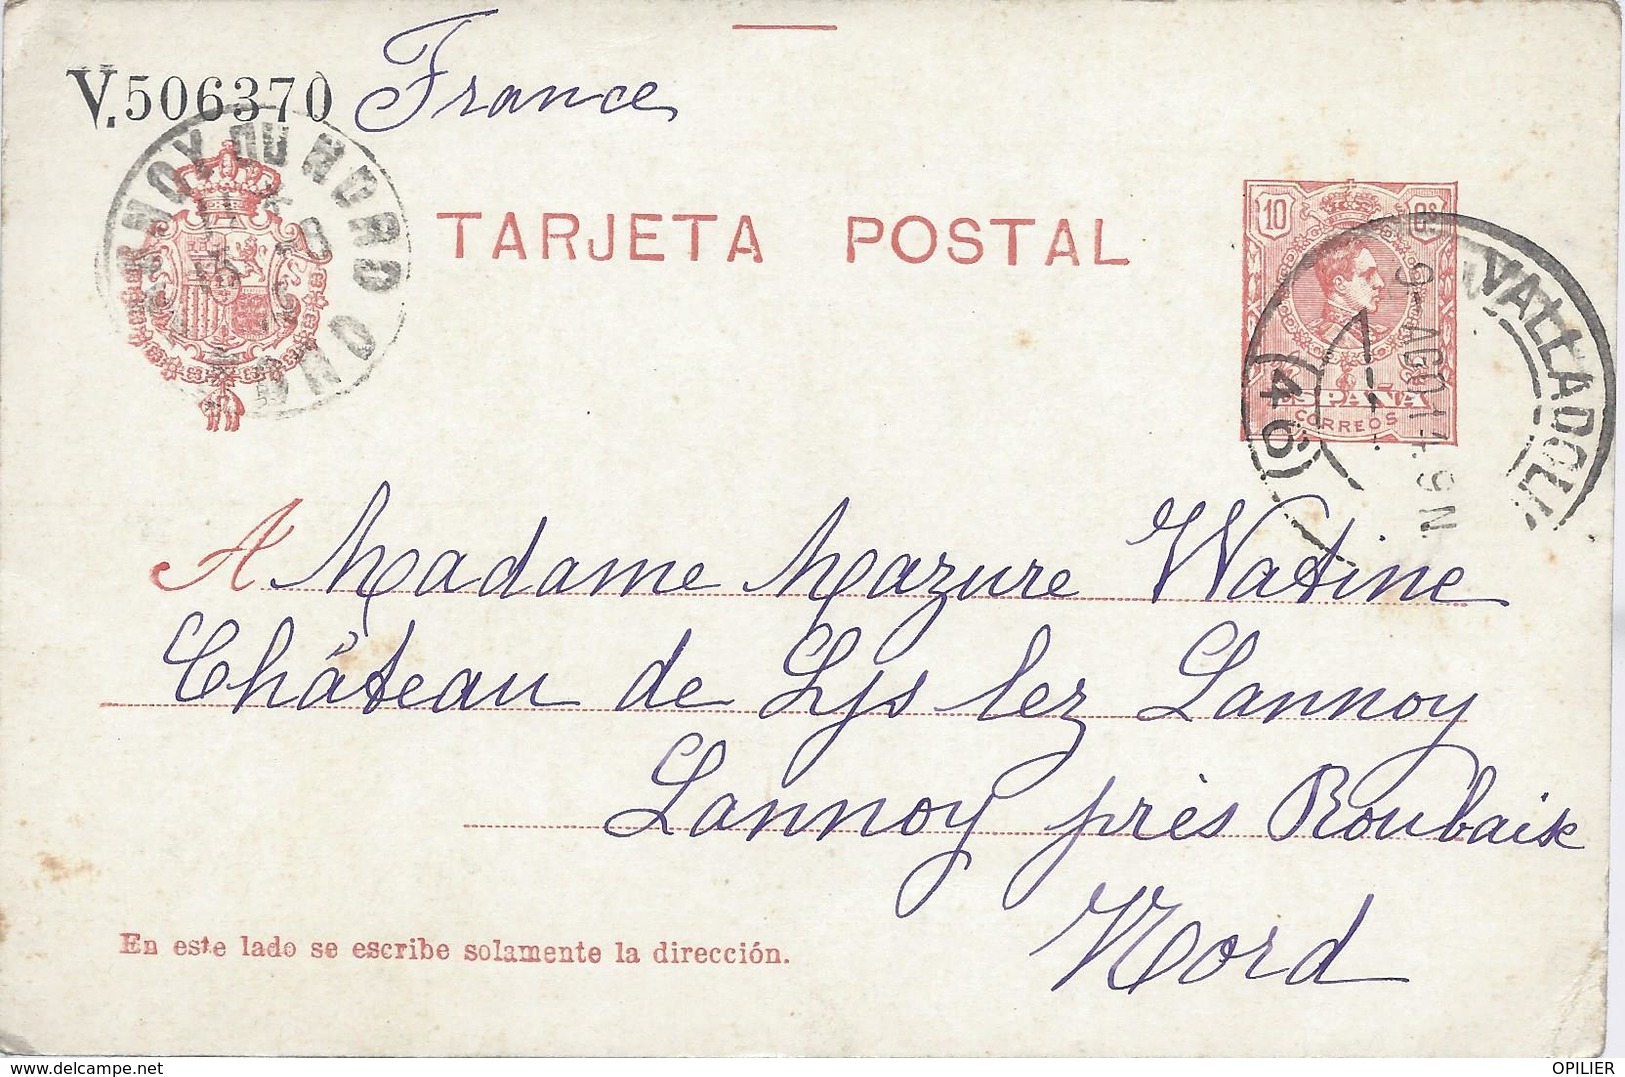 V.506370 France
LANNOY DU NORD
NORD
TARJETA POSTAL
10 Cs
ESPAÑA
CORREOS
VALLADOLID
AGO 14. 9N
(40)
A Madame Mazure Watine
Château de Lys lez Lannoy
Lannoy près Roubaix
Nord
En este lado se escribe solamente la dirección.
www.delcampe.net
OPILIER